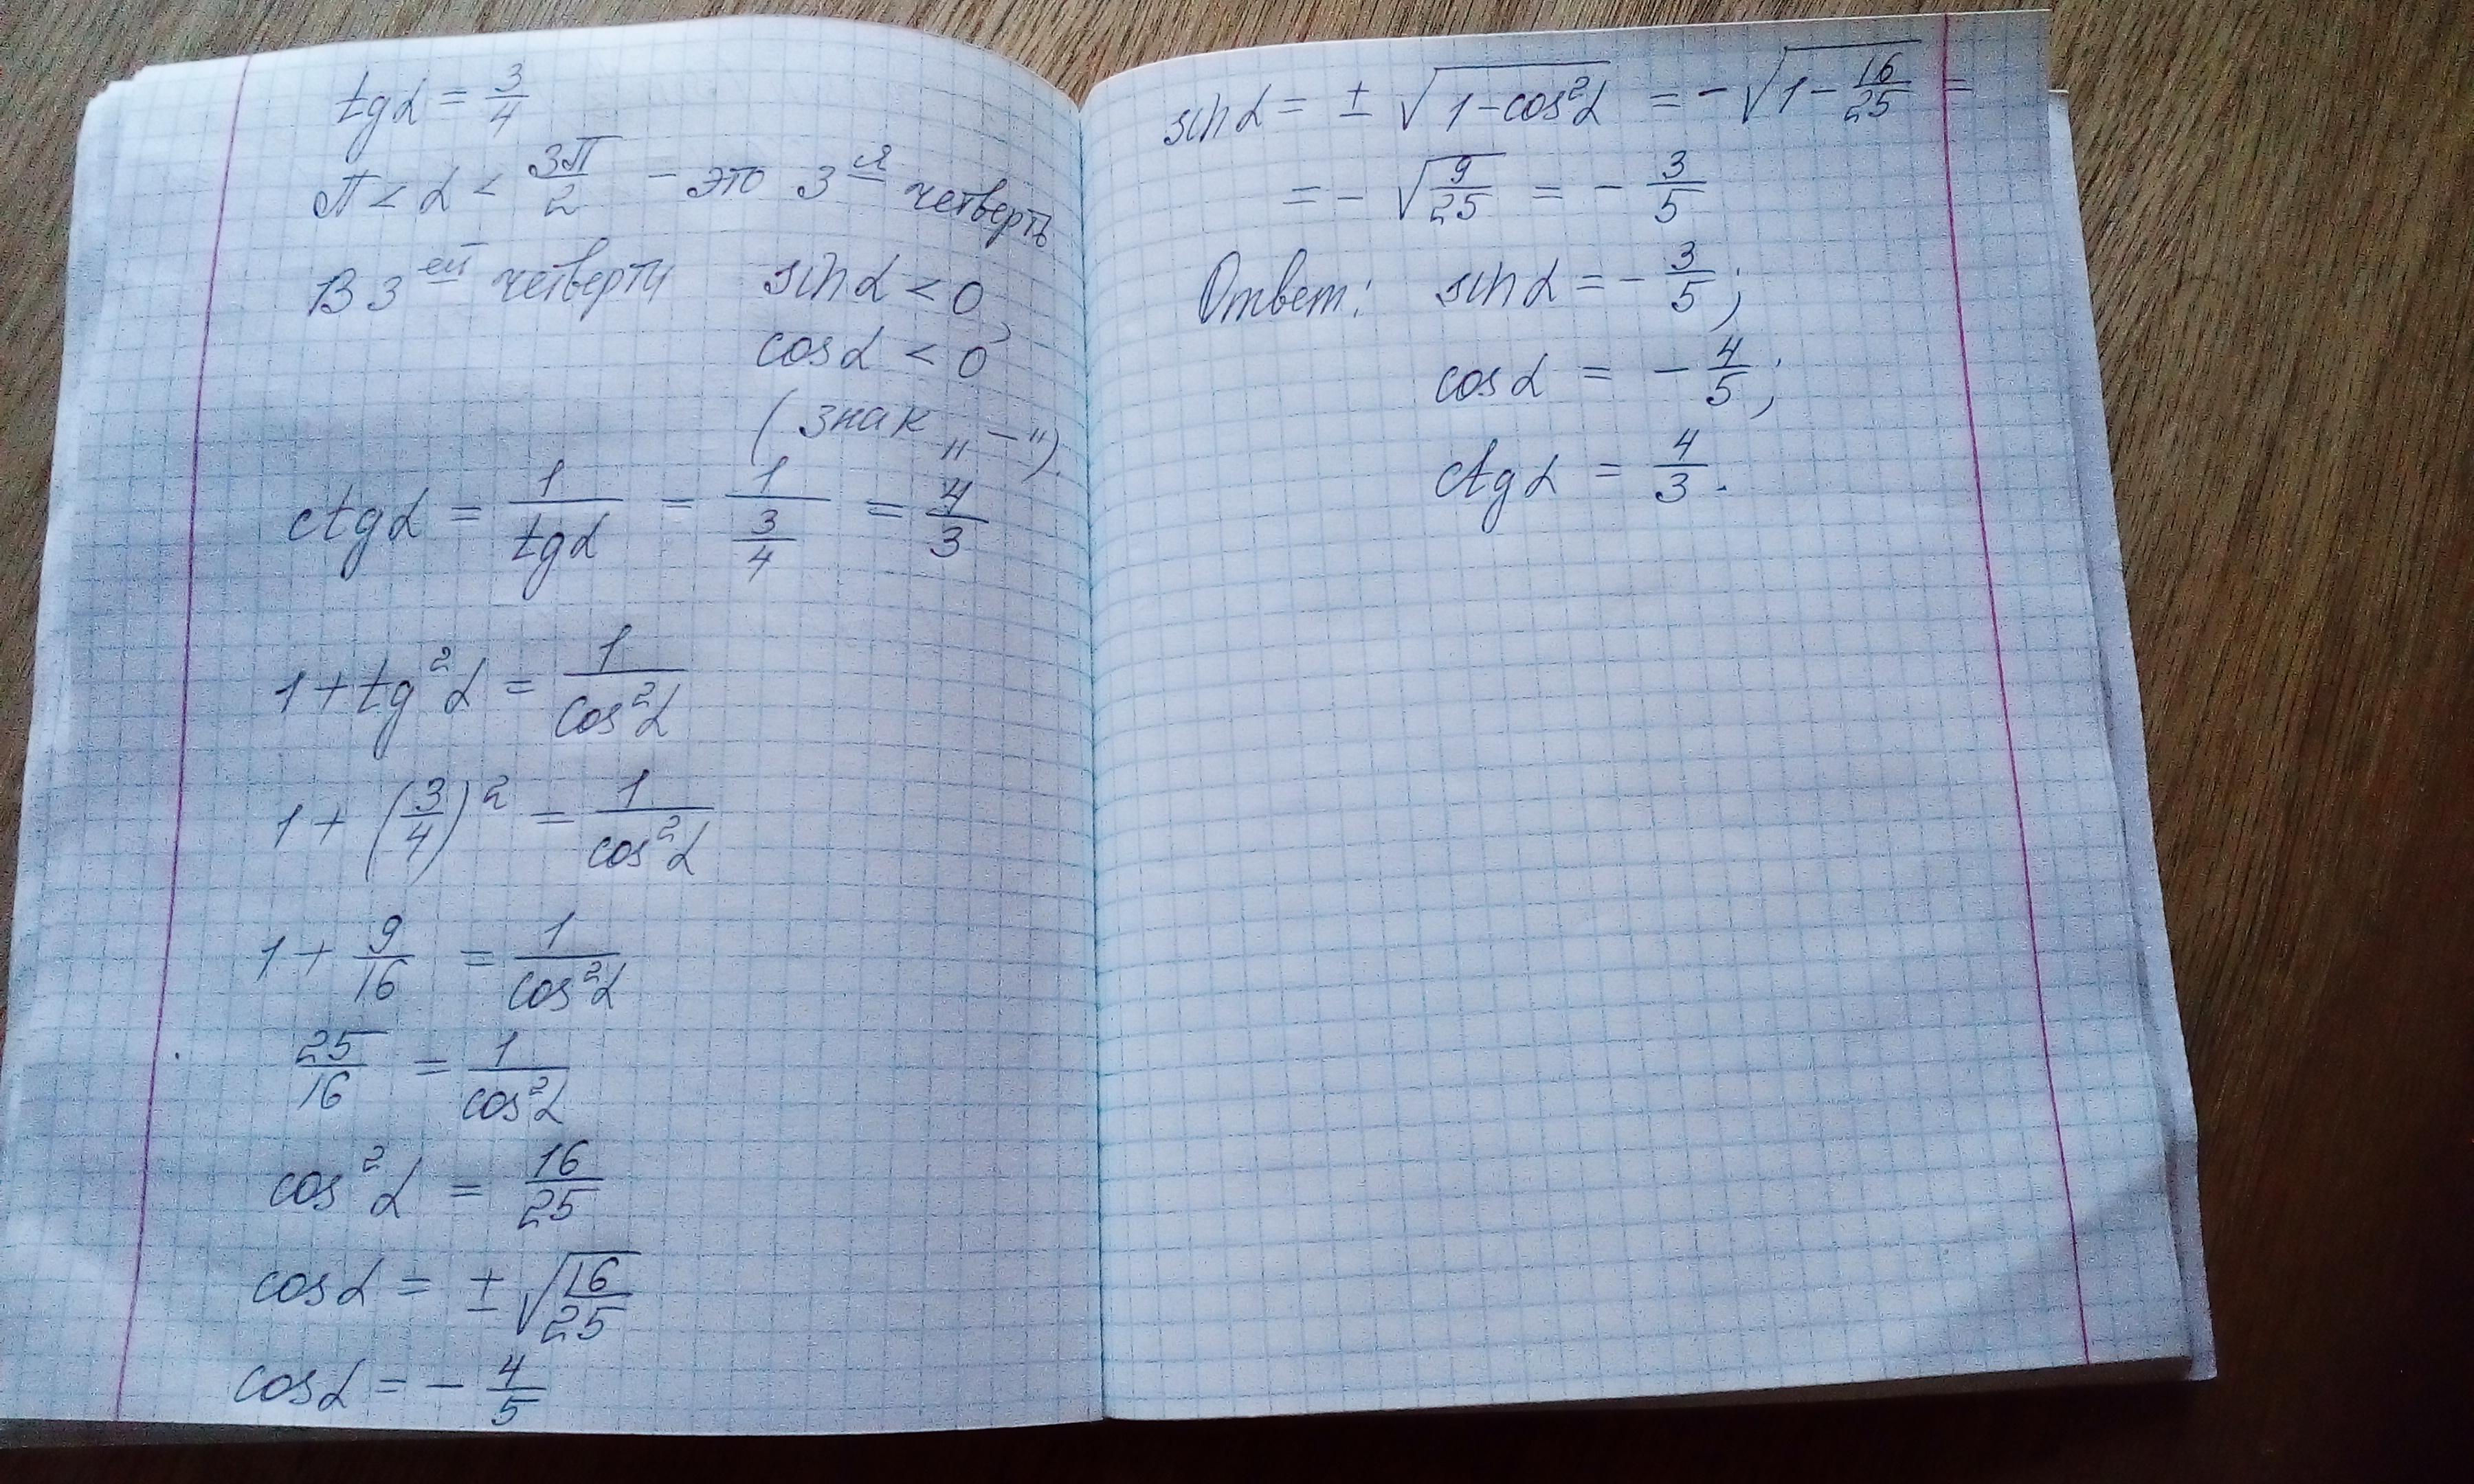 tgα = 3/4
π < α < 3π/2 - это 3 я четверть
В 3 ей четверти sinα < 0,
cosα < 0
(знак „-“).
ctgα = 1/tgα = 1/(3/4) = 4/3
1 + tg²α = 1/cos²α
1 + (3/4)² = 1/cos²α
1 + 9/16 = 1/cos²α
25/16 = 1/cos²α
cos²α = 16/25
cosα = ± √(16/25)
cosα = - 4/5
sinα = ± √(1-cos²α) = -√(1-16/25) =
= - √(9/25) = - 3/5
Ответ: sinα = - 3/5;
cosα = - 4/5;
ctgα = 4/3.